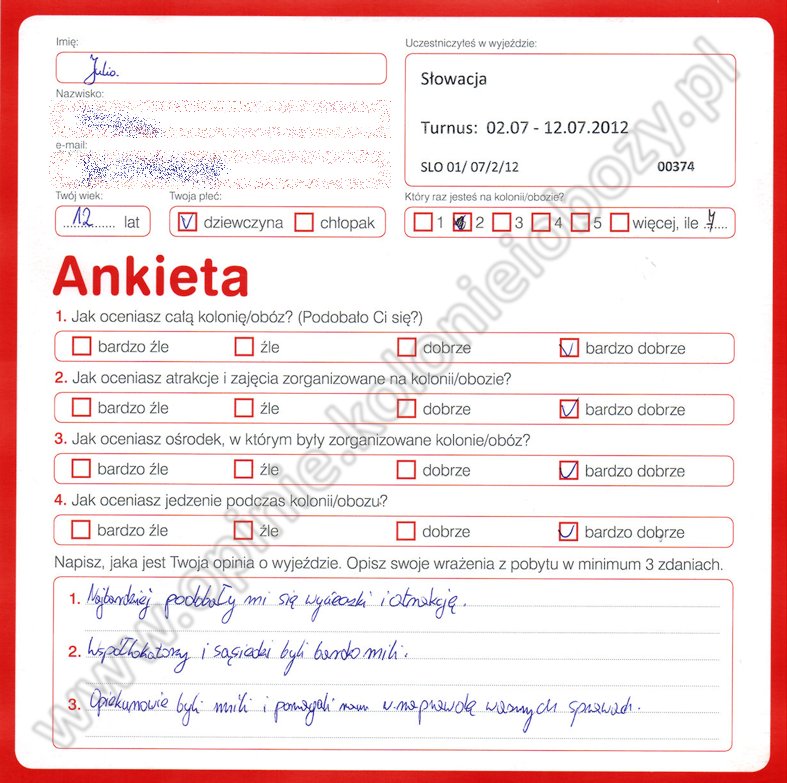 Imię:
Julia.
Nazwisko:
e-mail:
Twój wiek:
12 lat
Twoja płeć:
dziewczyna chłopak
Uczestniczyłeś w wyjeździe:
Słowacja
Turnus: 02.07 - 12.07.2012
SLO 01/ 07/2/12 00374
Który raz jesteś na kolonii/obozie?
1 2 3 4 5 więcej, ile 7
Ankieta
1. Jak oceniasz całą kolonię/obóz? (Podobało Ci się?)
bardzo źle źle dobrze bardzo dobrze
2. Jak oceniasz atrakcje i zajęcia zorganizowane na kolonii/obozie?
bardzo źle źle dobrze bardzo dobrze
3. Jak oceniasz ośrodek, w którym były zorganizowane kolonie/obóz?
bardzo źle źle dobrze bardzo dobrze
4. Jak oceniasz jedzenie podczas kolonii/obozu?
bardzo źle źle dobrze bardzo dobrze
Napisz, jaka jest Twoja opinia o wyjeździe. Opisz swoje wrażenia z pobytu w minimum 3 zdaniach.
1. Najbardziej podobały mi się wycieczki i atrakcję.
2. Współlokatorzy i sąsiedzi byli bardo mili.
3. Opiekunowie byli mili i pomagali nam w naprawdę ważnych sprawach.
www.opinie.kolonieiobozy.pl